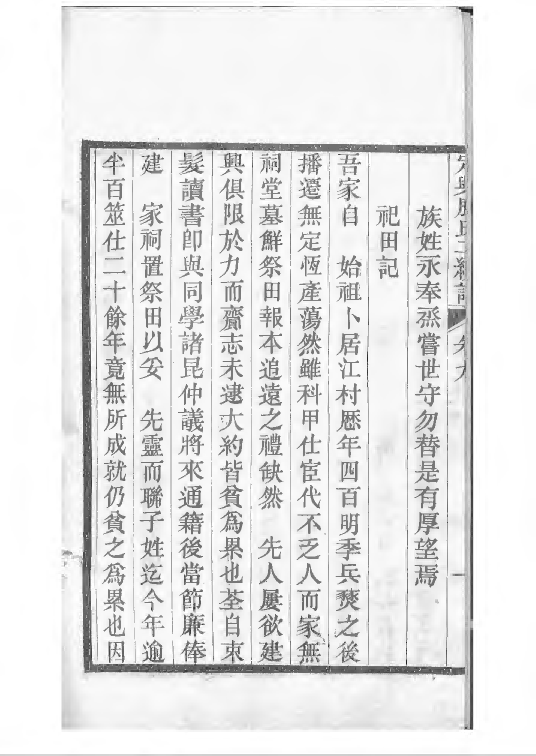 族姓永奉烝嘗世守勿替是有厚望焉
祀田記
吾家自　始祖卜居江村歷年四百明季兵燹之後
播遷無定恆產蕩然雖科甲仕宦代不乏人而家無
祠堂墓鮮祭田報本追遠之禮缺然　先人屢欲建
興俱限於力而齎志未逮大約皆貧為累也荃自束
髮讀書卽與同學諸昆仲議將來通籍後當節廉俸
建　家祠置祭田以妥　先靈而聯子姓迄今年逾
半百筮仕二十餘年竟無所成就仍貧之為累也因